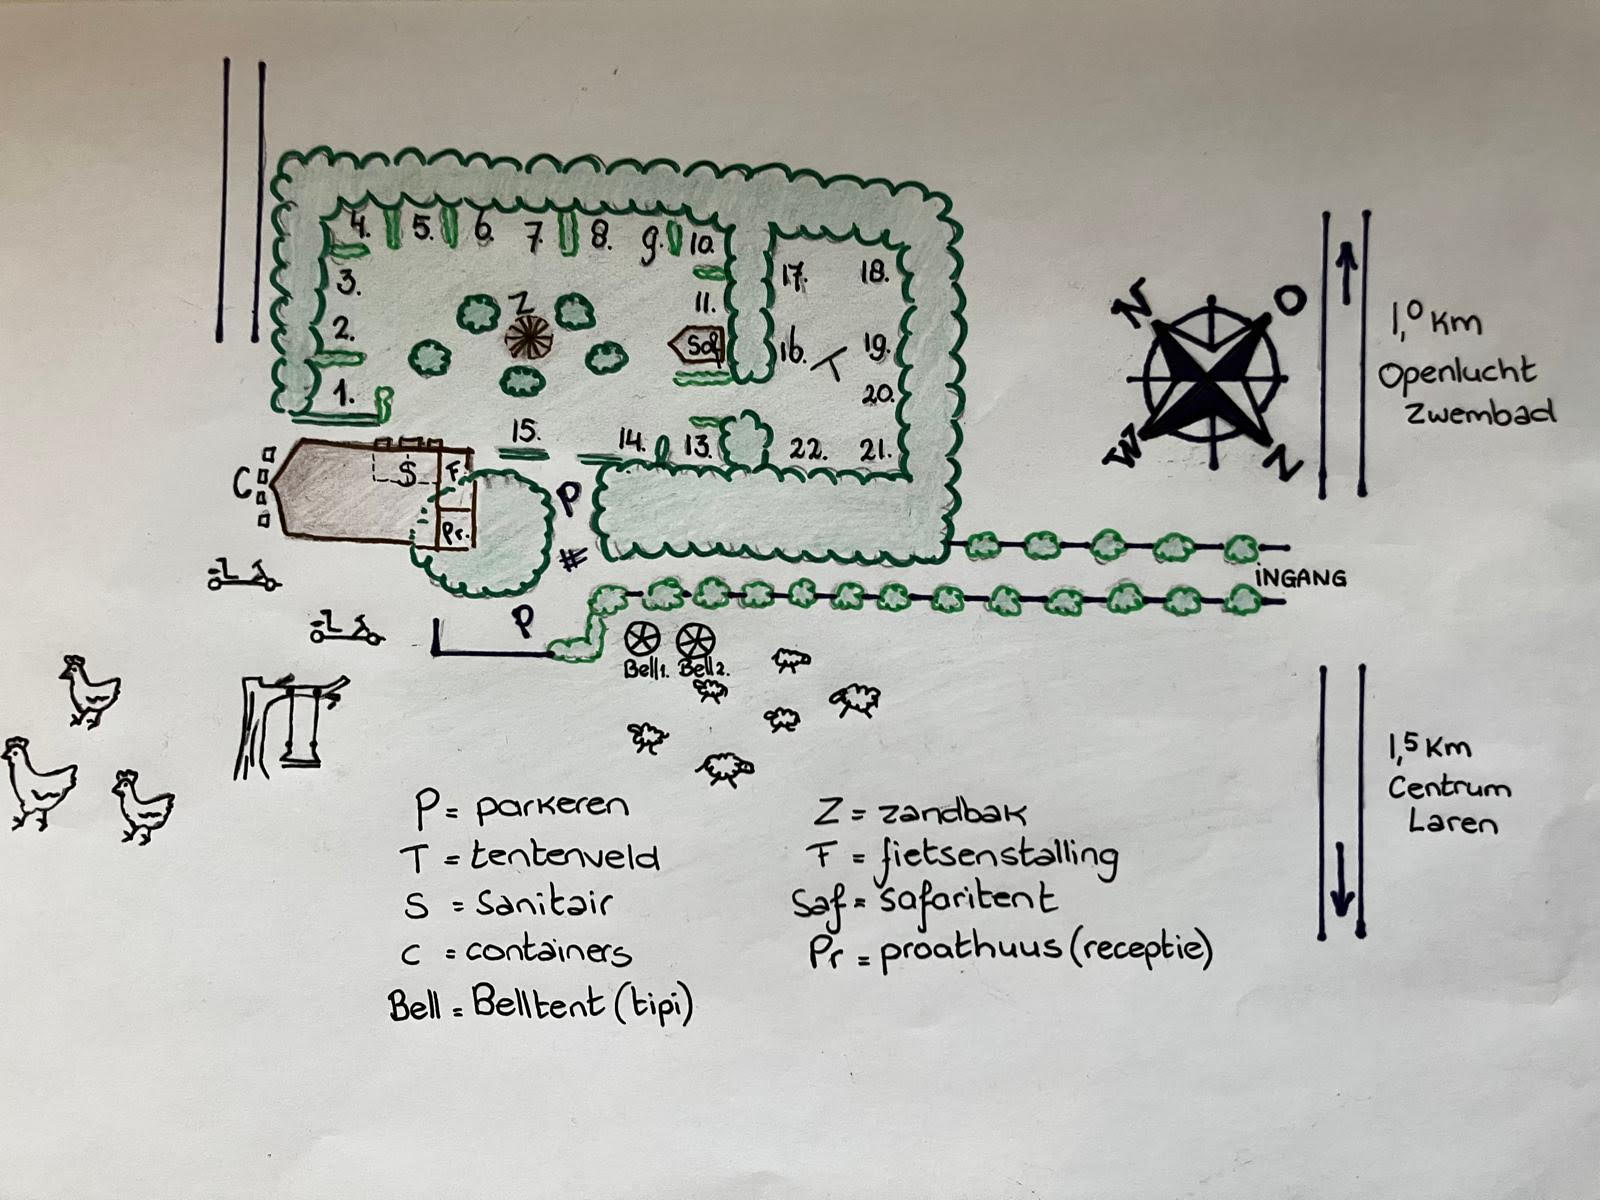 4. 5. 6. 7. 8. 9. 10.
3. Z 11. 17. 18.
2. Saf 16. T 19.
1. 20.
15. 14. 13. 22. 21.
C S F. P
Pr. #
P
Bell1. Bell2.
INGANG
N O
W N
1,0 Km
Openlucht
Zwembad
1,5 Km
Centrum
Laren
P = parkeren
T = tentenveld
S = Sanitair
C = containers
Bell = Belltent (tipi)
Z = zandbak
F = fietsenstalling
Saf = safaritent
Pr = proathuus (receptie)